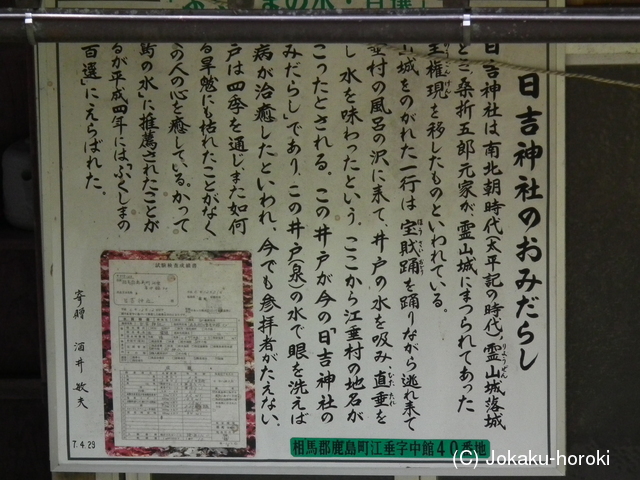 まの水・百選
日吉神社のおみだらし
日吉神社は南北朝時代(太平記の時代)、霊山城落城
りょうぜん
と三楽折五郎元家が、霊山城にまつられてあった
主権現を移したものといわれている。
山城をのがれた一行は 宝財踊を踊りながら逃れ来て
ほう さい おどり
垂村の風呂の沢に来て、井戸の水を汲み 直垂を
ひた たれ
し、水を味わったという。ここから江垂村の地名が
こったとされる。この井戸が今の「日吉神社の
みだらし」であり、この井戸(泉)の水で眼を洗えば
病が治癒したといわれ、今でも参拝者がたえない。
戸は四季を通じまた如何
る旱魃にも枯れたことがなく
の人の心を癒している。かって
島の水」に推薦されたことが
るが平成四年には「ふくしまの
百選」にえらばれた。
寄贈 酒井 敏夫
7.4.29
相馬郡鹿島町江垂字中館40番地
(C) Jokaku-horoki